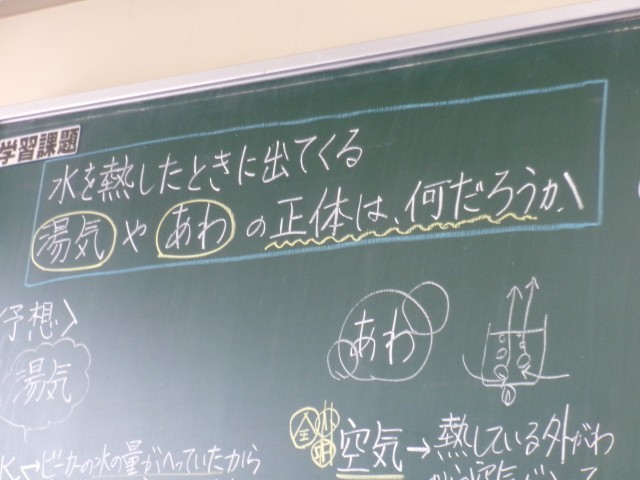 学習課題
水を熱したときに出てくる
湯気やあわの正体は、何だろうか、
〈予想〉
湯気
あわ
水→ビーカーの水の量がへっていたから
全
空気→熱している外がわ